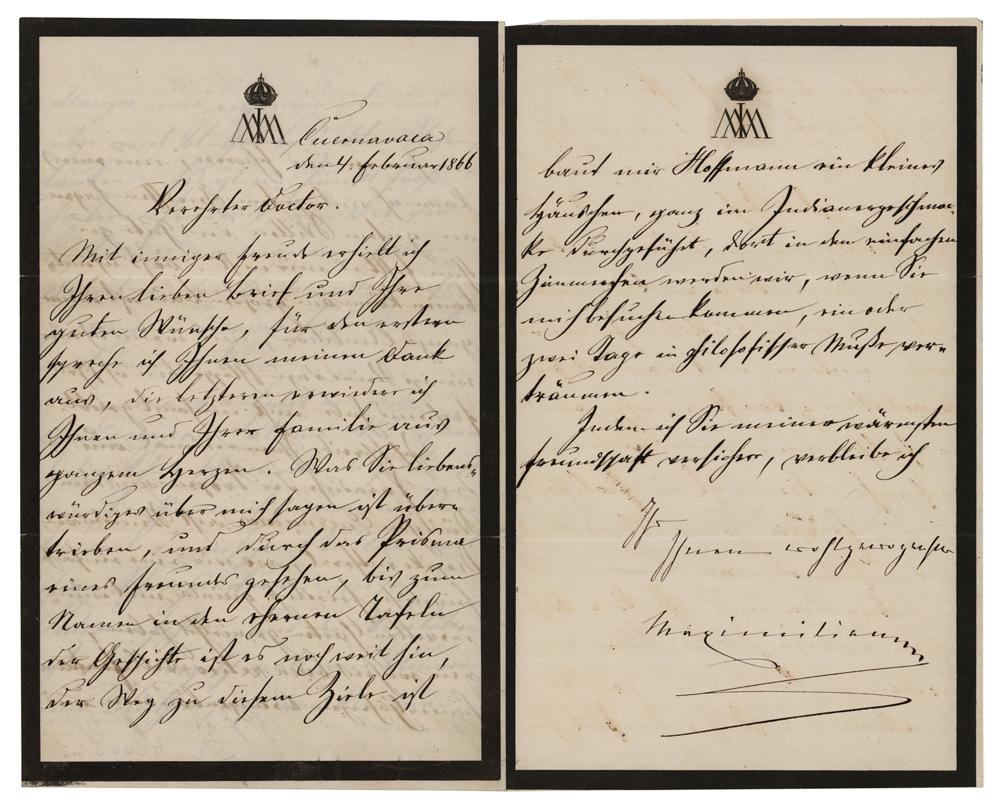 MIM
Cuernavaca
den 4. Februar 1866
Verehrter Doctor.
Mit inniger Freude erhielt ich
Ihren lieben Brief und Ihre
guten Wünsche, für den erstern
spreche ich Ihnen meinen Dank
aus, die letzteren erwiedere ich
Ihnen und Ihrer Familie aus
ganzem Herzen. Was Sie liebens-
würdiges über mich sagen ist über-
trieben, und durch das Prisma
eines Freundes gesehen, bis zum
Namen in den ehernen Tafeln
der Geschichte ist es noch weit hin,
der Weg zu diesem Ziele ist
MIM
baut mir Hoffmann ein kleines
Häuschen, ganz im Indianergeschma-
ke durchgeführt, dort in den einfachen
Zimmerchen werden wir, wenn Sie
mich besuchen kommen, ein oder
zwei Tage in philosofischer Muße ver-
träumen.
Indem ich Sie meiner wärmsten
Freundschaft versichere, verbleibe ich
Ihr
Ihnen wohlgewogenster
Maximilian